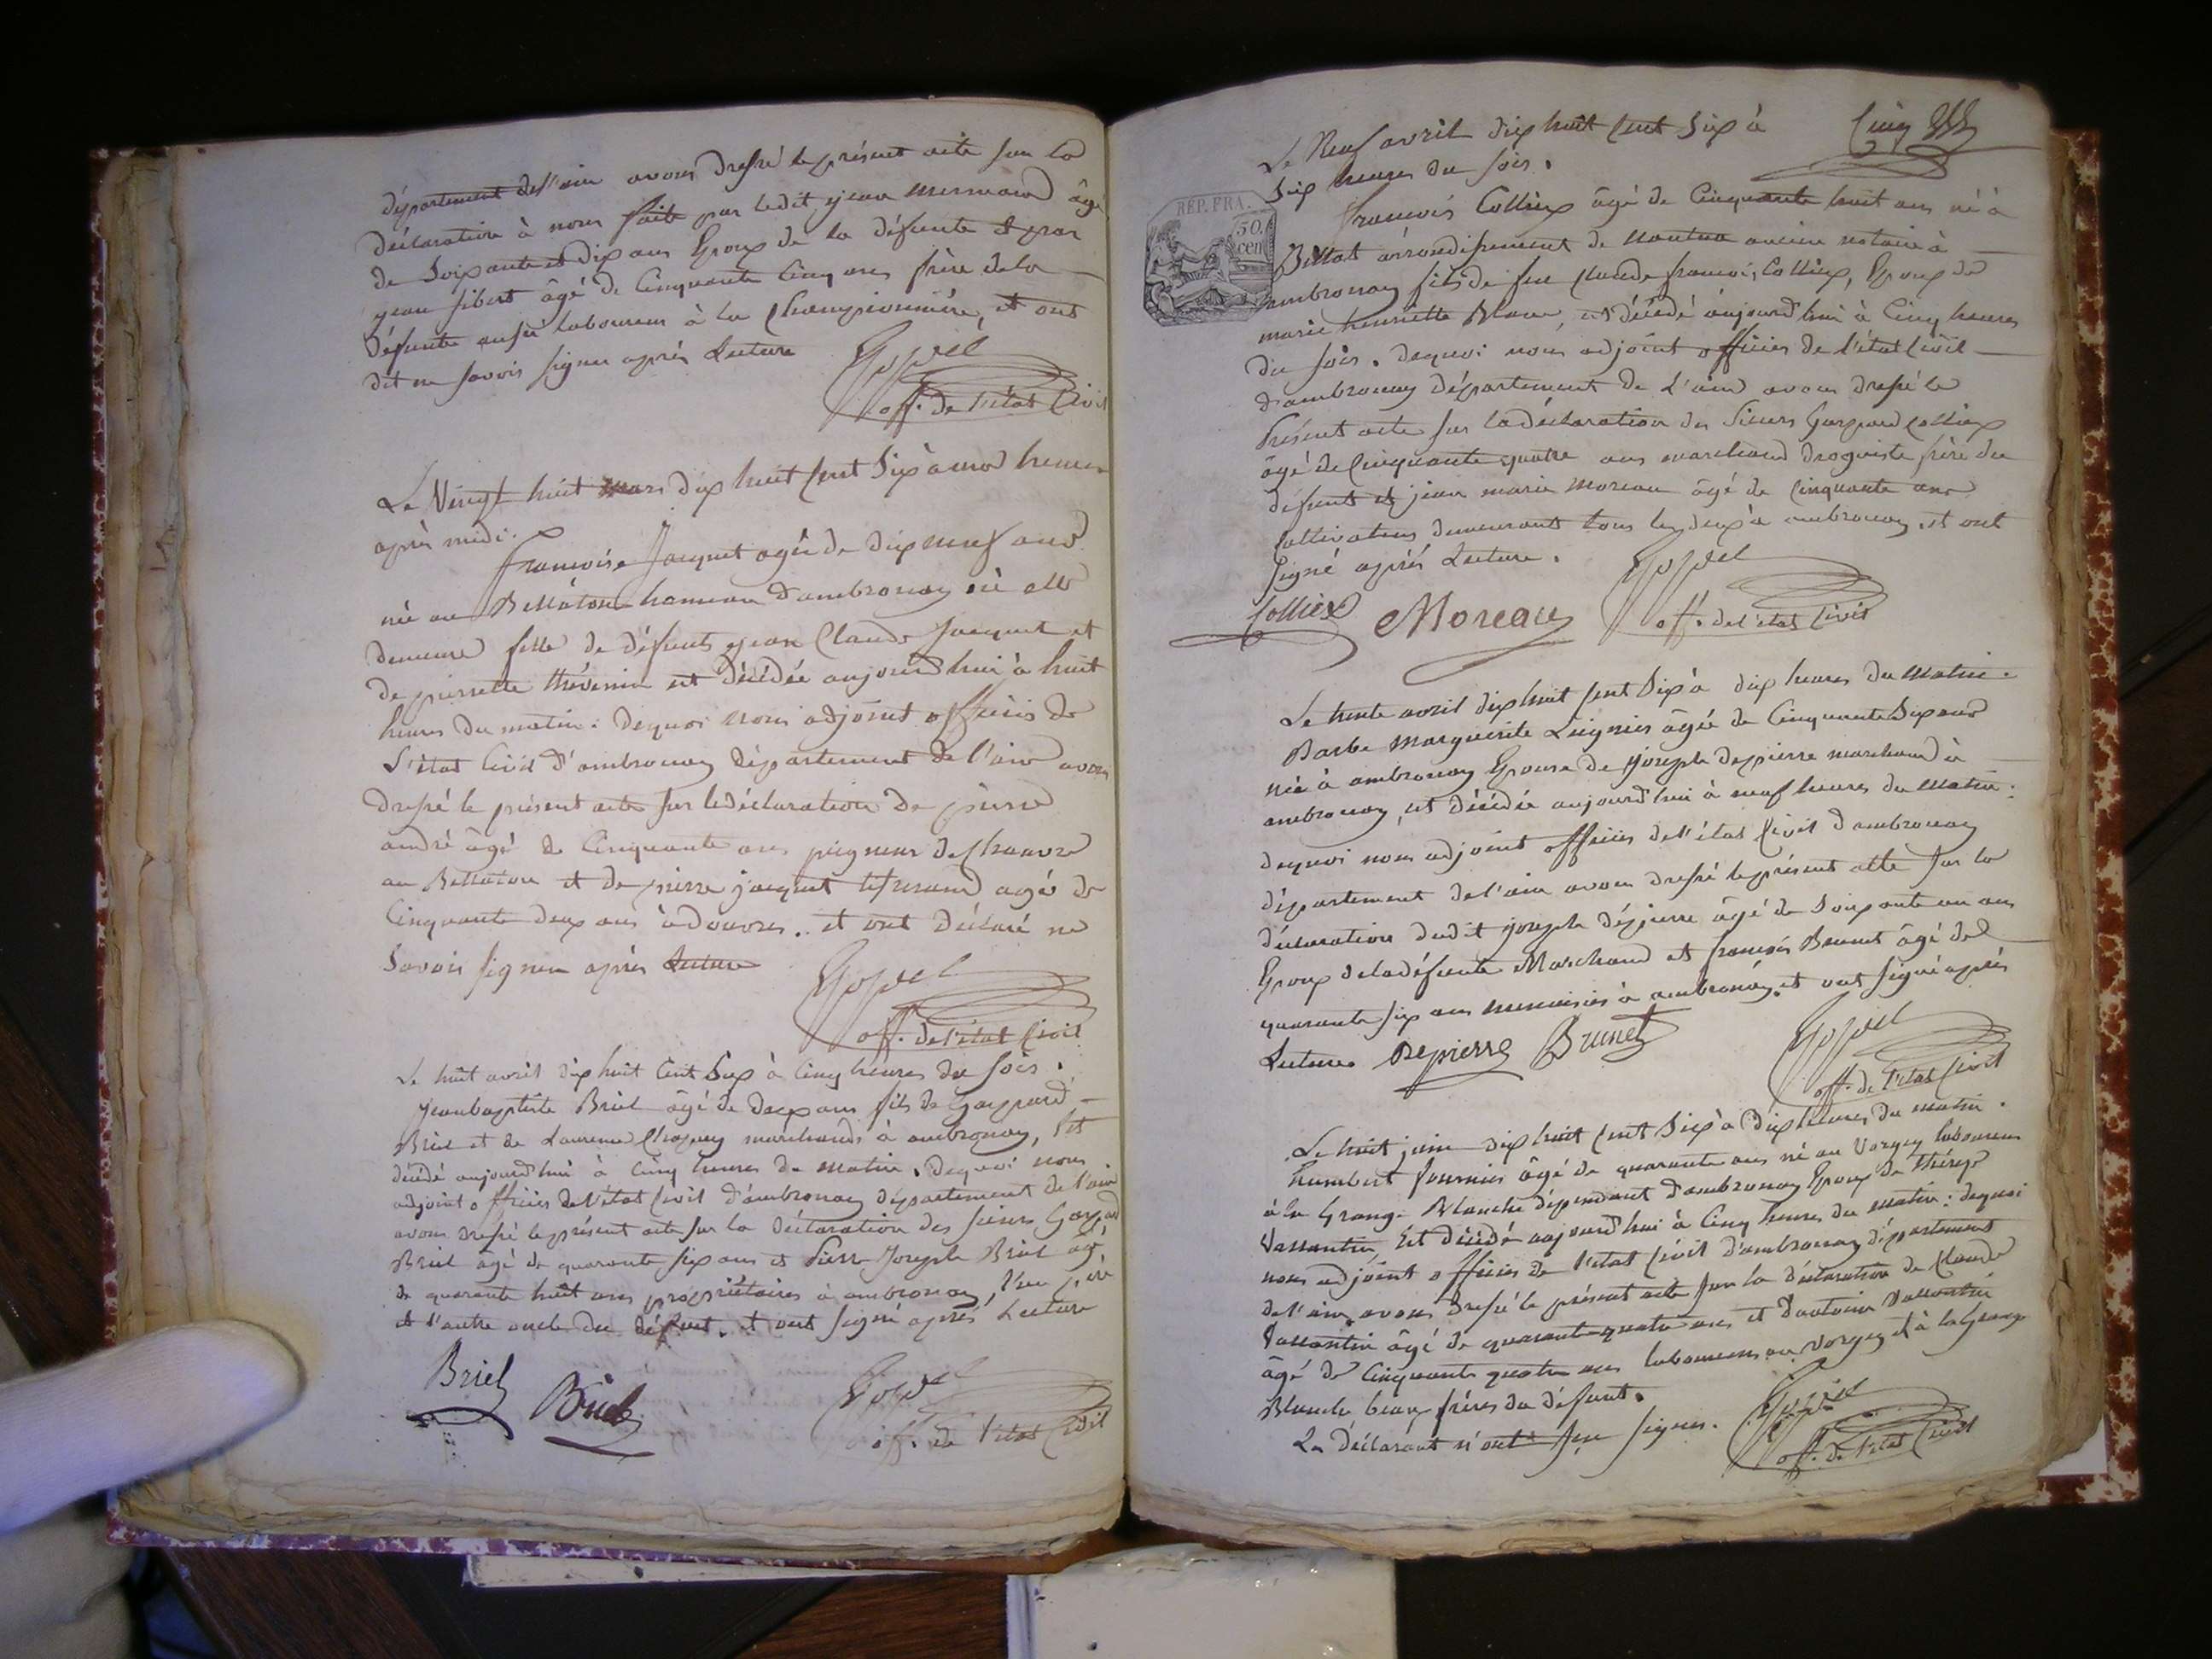 département del'ain avons dressé le présent acte sur la
déclaration à nous faite par ledit jean mermand âgé
de Soixante et dix ans Epoux de la défunte et par
jean sibert âgé de Cinquante Cinq ans frère de la
défunte aussi laboureur à la Championnière, et ont
dit ne savoir signer après Lecture
off. de l'état Civil
Le Vingt huit mars dix huit Cent Six à une heure
après midi.
francoise Jacquet agée de dix neuf ans
née au Bellaton hameau d'ambronay où elle
demeure fille de défunts jean Claude Jacquet et
de pierrette thévenin est décédée aujourd'hui à huit
heures du matin. dequoi nous adjoint officier de
L'état Civil d'ambronay département de l'ain avons
dressé le présent acte sur la déclaration de pierre
andré âgé de Cinquante ans peigneur de Chanvre
au Bellaton et de pierre jacquet tisserand agé de
Cinquante deux ans à douvres. et ont déclaré ne
Savoir signer après Lecture
off. de l'état Civil
Le huit avril dix huit Cent Six à Cinq heures du soir.
jeanbaptiste Briel âgé de deux ans fils de Gaspard
Briel et de Laurence marchands à ambronay, Est
décédé aujourd'hui à Cinq heures du matin. dequoi nous
adjoint officier de l'état Civil d'ambronay département de l'ain
avons dressé le présent acte sur la déclaration des sieurs Gaspard
Briel âgé de quarante six ans et Pierre Joseph Briel âgé
de quarante huit ans propriétaires à ambronay, l'un père
et l'autre oncle du défunt. et ont signé après Lecture
Briel Briel
off. de l'état Civil
Cinq
Le Neuf avril dix huit Cent Six à
Six heures du soir.
REP. FRA.
50.
cen
francois Colliex âgé de Cinquante huit ans né à
arrondissement de nantua ancien notaire à
ambronay fils de feu Claude francois Colliex, Epoux de
marie henriette Blanc, est décédé aujourd'hui à Cinq heures
du soir. dequoi nous adjoint officier de l'état Civil
d'ambronay département de L'ain avons dressé le
Présent acte sur la déclaration des Sieurs Gaspard Colliex
âgé de Cinquante quatre ans marchand droguiste frère du
défunt et jean marie moreau âgé de Cinquante ans
Cultivateur demeurant tous les deux à ambronay, et ont
signé après Lecture.
Colliex Moreau
off. de l'état Civil
Le trente avril dix huit Cent Six à dix heures du matin.
Barbe marguerite âgée de Cinquante Six ans
née à ambronay Epouse de joseph depierre marchand à
ambronay, est décédée aujourd'hui à neuf heures du matin.
dequoi nous adjoint officier de l'état Civil d'ambronay
département de l'ain avons dressé le présent acte sur la
déclaration dudit joseph dépierre âgé de Soixante un ans
Epoux de la défunte Marchand et francois Brunet âgé de
quarante six ans menuisier à ambronay, et ont signé après
Lecture. Depierre Brunet
off. de l'état Civil
Le huit juin dix huit Cent Six à dix heures du matin.
humbert fournier âgé de quarante ans né au Vorgey laboureur
à la Grange Blanche dépendant d'ambronay Epoux de thérèse
Vassantin, Est décédé aujourd'hui à Cinq heures du matin: dequoi
nous adjoint officier de l'état Civil d'ambronay département
de l'ain, avons dressé le présent acte sur la déclaration de Claude
Vassantin âgé de quarante quatre ans et d'antoine Vassantin
âgé de Cinquante quatre ans laboureurs au Vorgey et à la Grange
Blanche beaux frères du défunt.
Les déclarants n'ont su signer.
off. de l'état Civil